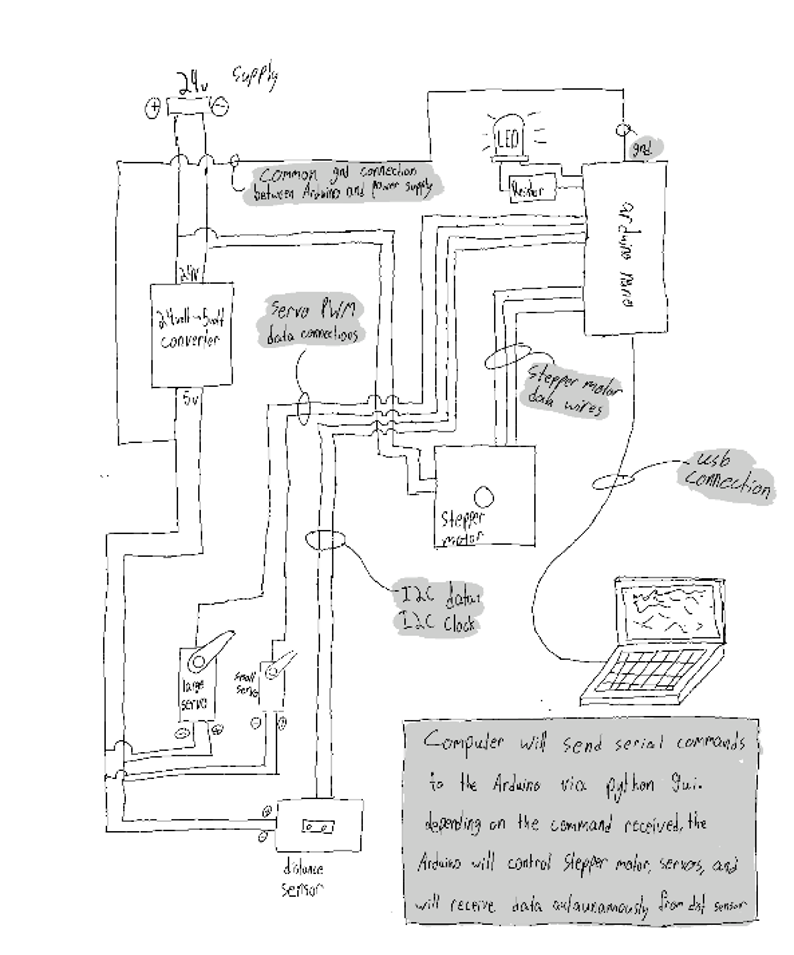 24v supply
+ -
LED
gnd
Common gnd connection
between Arduino and power supply
Resistor
arduino nano
24v
24volt→5volt
converter
Servo PWM
data connections
5v
Stepper motor
data wires
usb
connection
Stepper
motor
I2C data
I2C Clock
large
servo
small
servo
- +
- +
+
-
distance
sensor
Computer will send serial commands
to the Arduino via python gui.
depending on the command received, the
Arduino will control Stepper motor, servos, and
will receive data autaunamously from dist sensor